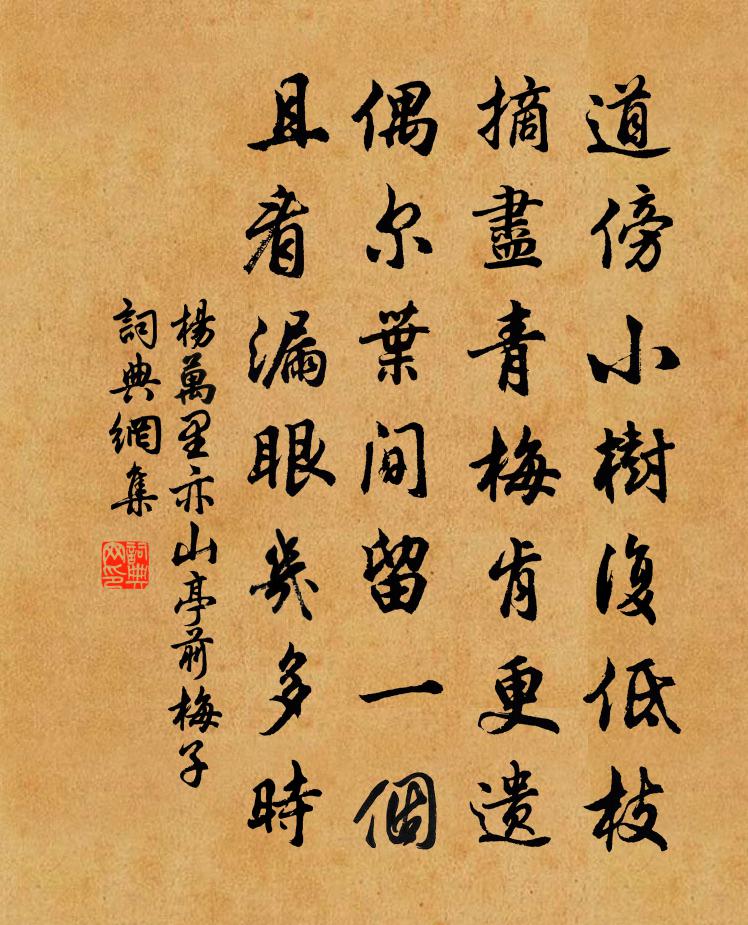 道傍小樹復低枝
摘盡青梅肯更遗
偶尔葉间留一個
且看漏眼幾多時
楊萬里亦山亭前梅子
詞典網集
詞典網印